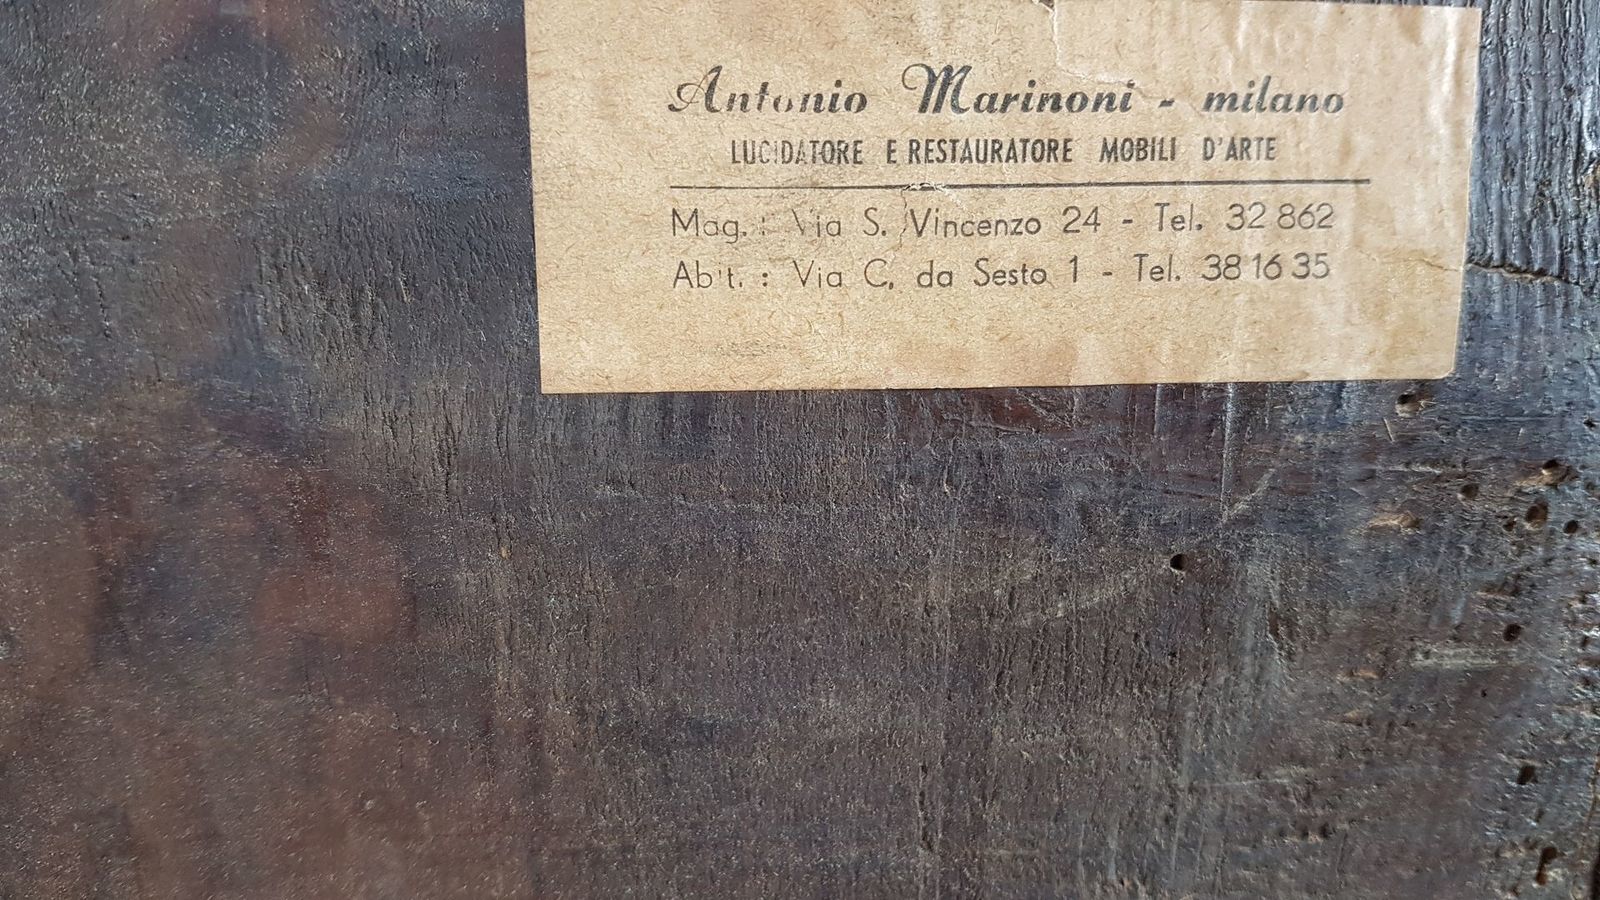 Antonio Marinoni - milano
LUCIDATORE E RESTAURATORE MOBILI D'ARTE
Mag. : Via S. Vincenzo 24 - Tel. 32 862
Abit. : Via C. da Sesto 1 - Tel. 38 16 35